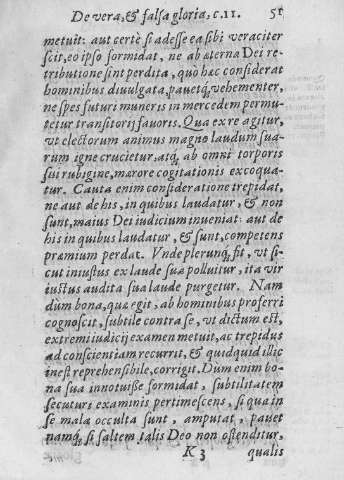 De vera, & falsa gloria, c.11. 51
metuit: aut certè si adesse ea sibi veraciter
scit, eo ipso formidat, ne ab æterna Dei re-
tributione sint perdita, quo hæc considerat
hominibus diuulgata. pauetq; vehementer,
ne spes futuri muneris in mercedem permu-
tetur transitorij fauoris. Qua ex re agitur,
vt electorum animus magno laudum sua-
rum igne crucietur, atq; ab omni torporis
sui rubigine, mærore cogitationis excoqua-
tur. Cauta enim consideratione trepidat,
ne aut de his, in quibus laudatur, & non
sunt, maius Dei iudicium inueniat: aut de
his in quibus laudatur, & sunt, competens
præmium perdat. Vnde plerunq; fit, vt si-
cut iniustus ex laude sua polluitur, ita vir
iustus audita sua laude purgetur. Nam
dum bona, quæ egit, ab hominibus proferri
cognoscit, subtile contra se, vt dictum est,
extremi iudicij examen metuit, ac trepidus
ad conscientiam recurrit, & quidquid illic
inest reprehensibile, corrigit. Dum enim bo-
na sua innotuisse formidat, subtilitatem
secuturi examinis pertimescens, si qua in
se mala occulta sunt, amputat, pauet
namq; si saltem talis Deo non ostenditur,
K 3 qualis